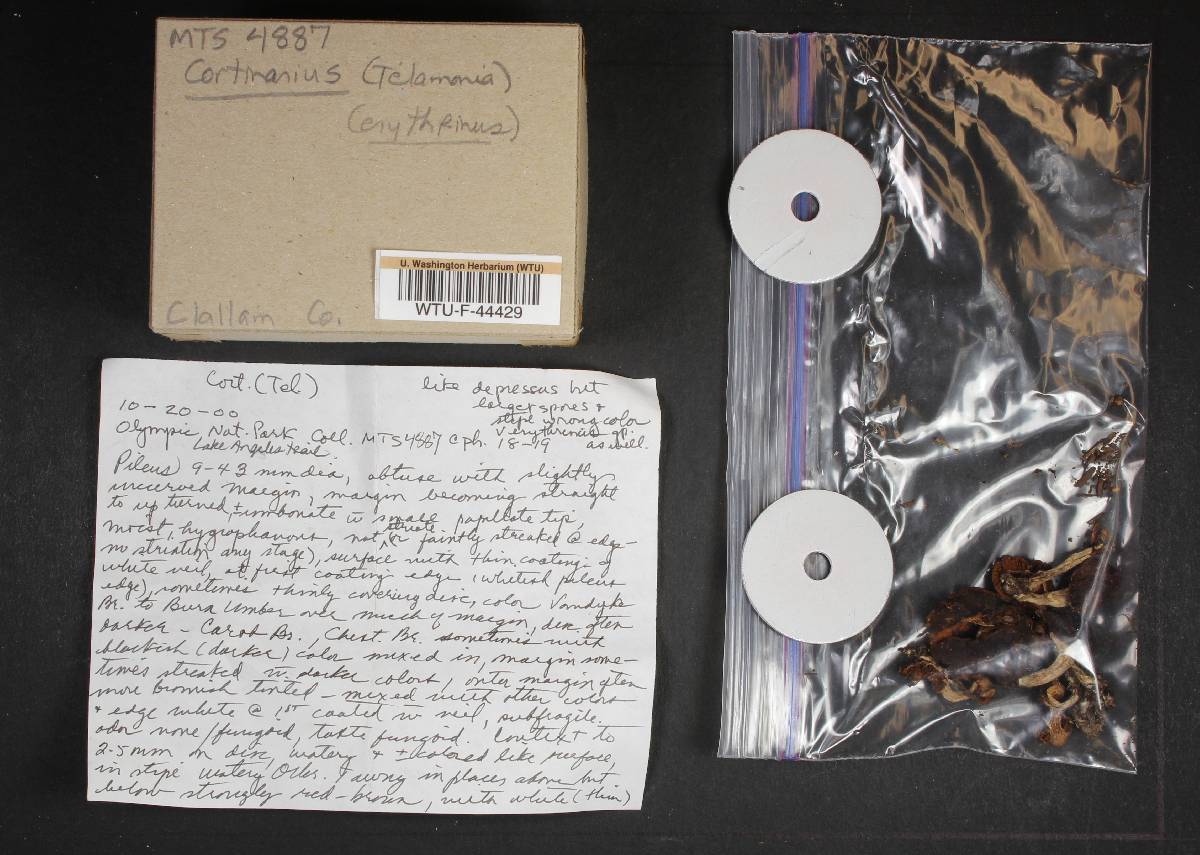 MTS 4887
Cortinarius (Telamonia)
(erythrinus)
U. Washington Herbarium (WTU)
WTU-F-44429
Clallam Co.
Cort. (Tel.)
like depressus but
larger spores +
stipe wrong color
v. erythrinus gp.
as well.
10-20-00
Olympic Nat. Park Coll. MTS4887 c ph. 18-19
Lake Angeles trail.
Pileus) 9-43 mm dia, obtuse with slightly
incurved margin, margin becoming straight
to up turned, ± umbonate w small papillate tip,
moist, hygrophanous, not striate or faintly streaked @ edge-
no striation any stage), surface with thin coating of
white veil, at first coating edge (whitish pileus
edge), sometimes thinly covering disc, color Vandyke
Br. to Burn Umber over much of margin, disc often
darker - Carob Br., Chest Br. sometimes with
blackish (darker) color mixed in, margin some-
times streaked w. darker colors, outer margin often
more brownish tinted - mixed with other colors
+ edge white @ 1st coated w veil, subfragile,
odor none/fungoid, taste fungoid. Context to
2.5mm on disc, watery + ± colored like surface,
in stipe watery Ocher. Tawny in places above but
below strongly red-brown, with white (thin)